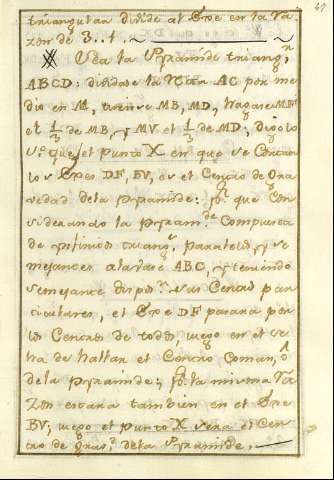 67
triangular divide al Exe en la Ra-
zon de 3..1.
Sea la Pyramide triang.r
ABCD: dividase la Recta AC por me-
dio en M, tirense MB, MD, hagase MF
el 1/3 de MB, y MV el 1/3 de MD; digo lo
1.o que el punto X en que se Concur-
los Exes DF, BV, es el Centro de Gra-
vedad de la Pyramide: p.r que con-
siderando la Pyram.de Compuesta
de ynfinitos triang.s paralelos, y se-
mejantes a la vase ABC, y teniendo
semejante dispos.n sus Centros par-
ticulares, el Exe DF pasara por
los Centros de todos, luego en el se
ha de hallar el Centro Comun,
de la Pyramide; p.r la misma Ra-
zon estara tambien en el Exe
BV; luego el punto X sera el Cen-
tro de Grav.d de la Pyramide.